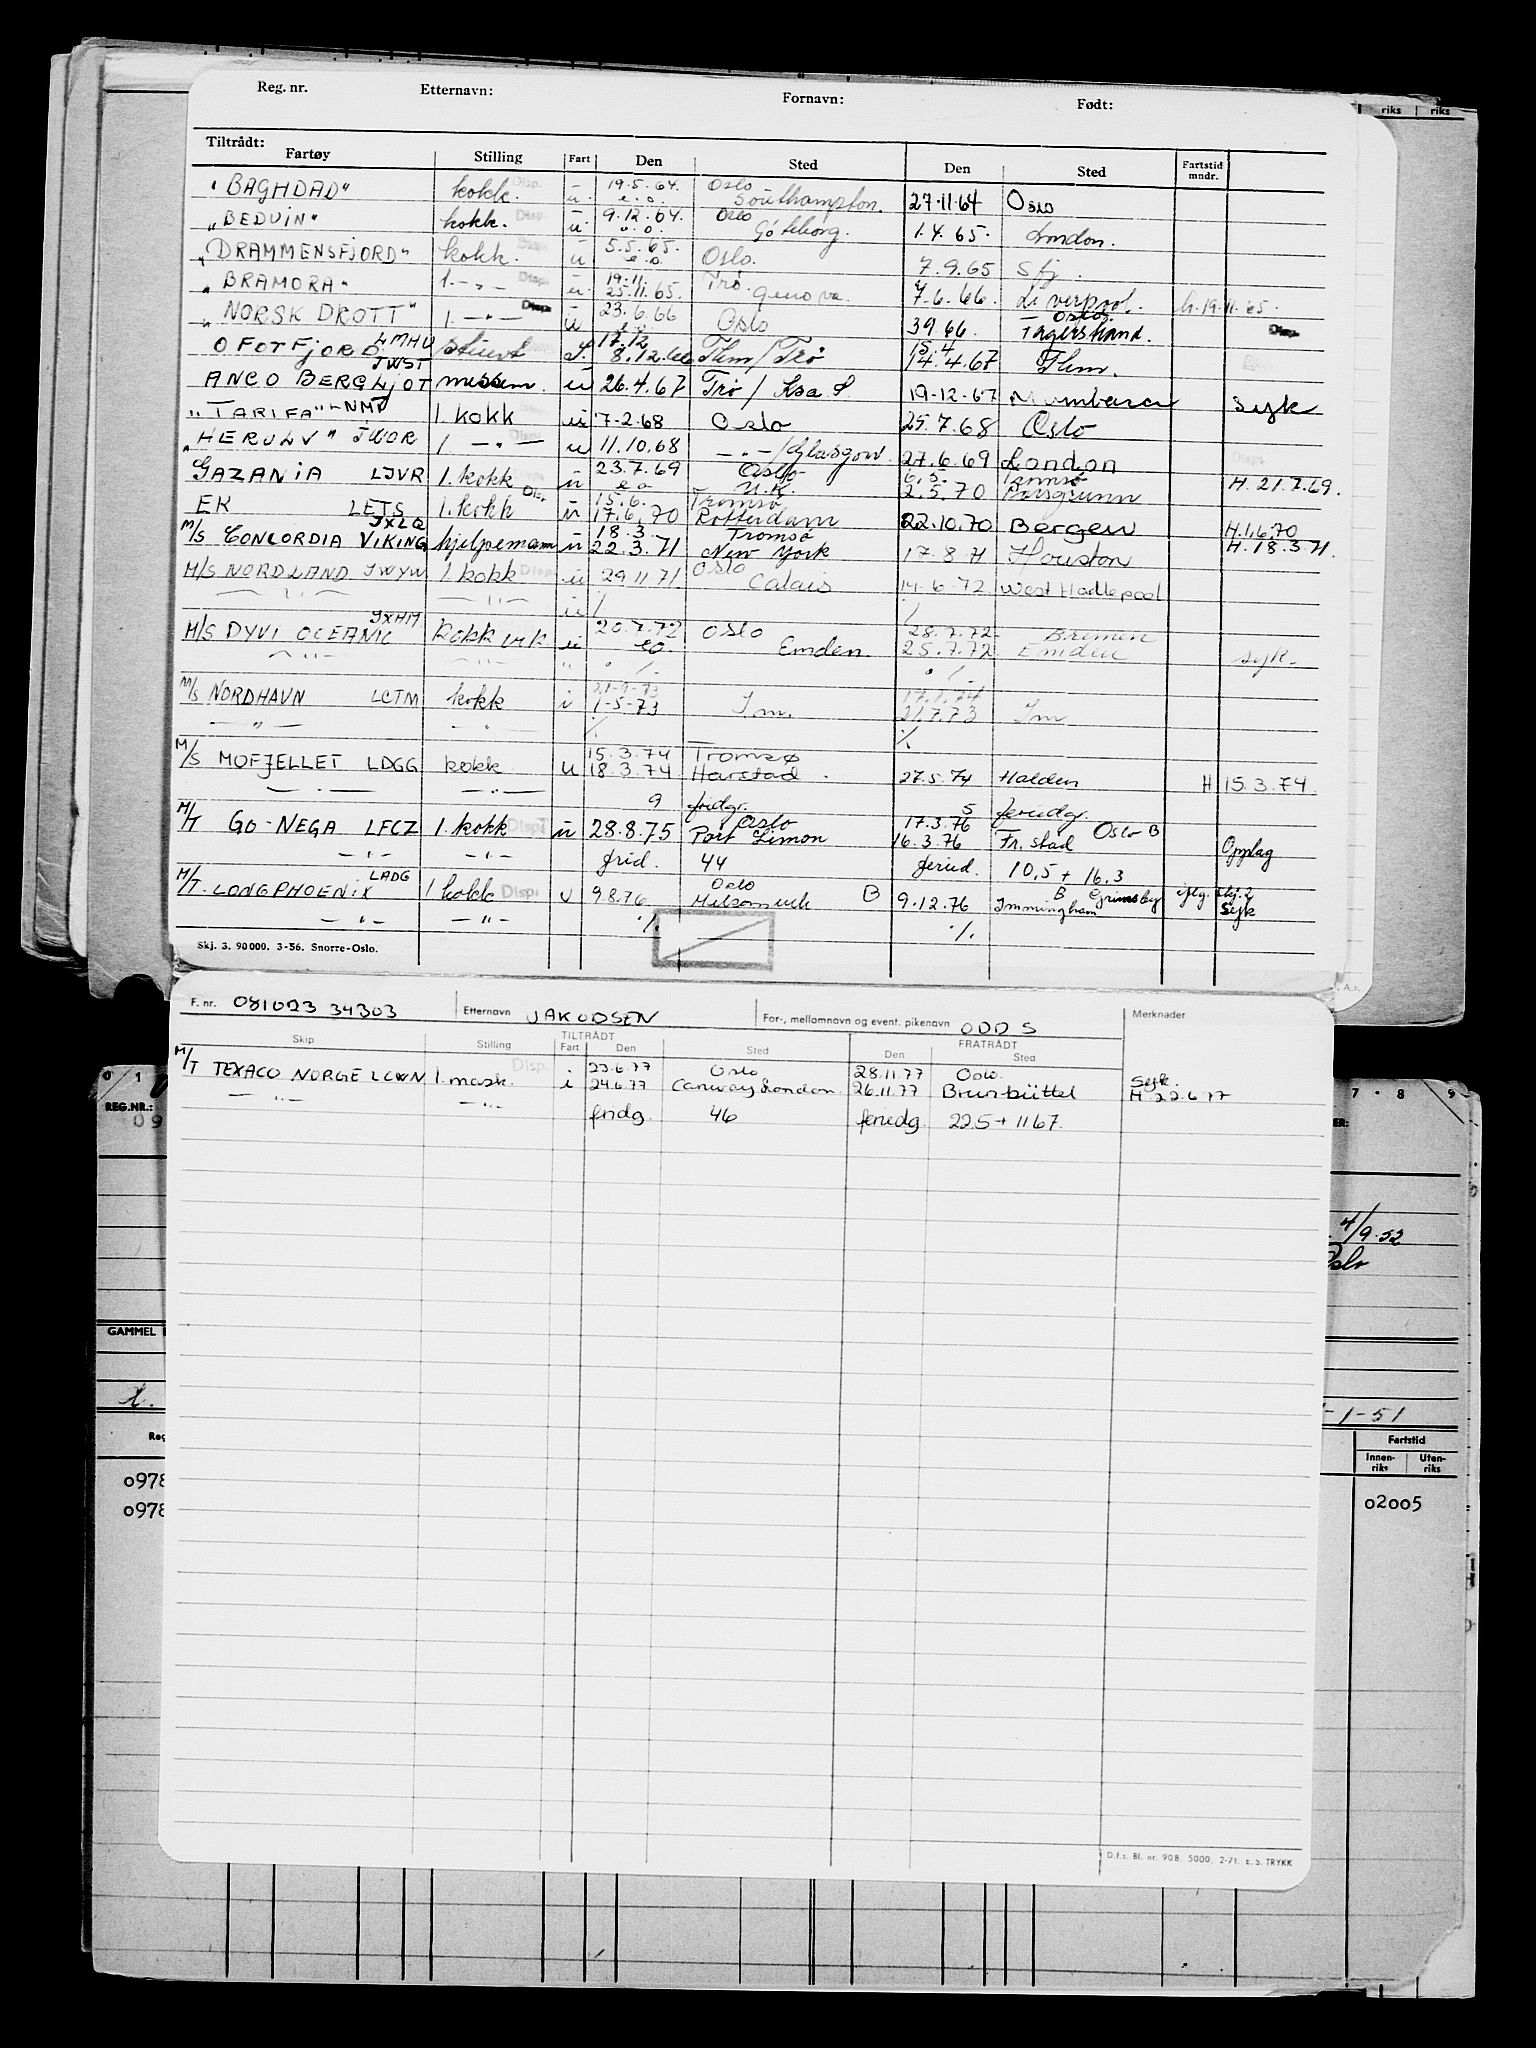 riks riks
Reg. nr. Etternavn: Fornavn: Født:
Tiltrådt:
Fartøy Stilling Fart Den Sted Den Sted Fartstid mndr.
"BAGHDAD" kokk. Disp. u. 19.5.64. e.o. Oslo Southampton. 27.11.64 Oslo
"BEDUIN" kokk. Disp. u. 9.12.64. e.o. Oslo Göteborg. 1.4.65. London.
"DRAMMENSFJORD" kokk. u 5.5.65. e.o. Oslo. 7.9.65 Sfj.
"BRAMORA" 1. -"- Disp. u. 19.11. 25.11.65. Trø. Genova. 7.6.66. Liverpool. h.19.11.65.
"NORSK DROTT" 1. -"- Disp. u 23.6.66 e.o. Oslo Oslo. 3966. Fagerstrand. Disp.
OFOTFJORD LMHU stuert S. 17.12 8.12.66 Thm/Trø 15.4 14.4.67 Thm.
ANCO BERGLJOT JWST messm. u 26.4.67 Trø / Ksa S. 19-12-67 Mombasa Syk
"TARIFA" LNMV 1. kokk u 7-2.68 Oslo 25.7.68 Oslo
"HERULV" JWOR 1 -"- u 11.10.68 -"-/Glasgow. 27.6.69 London
GAZANIA LJVR 1. kokk u 23.7.69 e o Oslo U.K. 6.5. 2.5.70 Tromsø Porsgrunn H. 21.7.69.
EK LETS 1. kokk Disp. u 15.6. 17.6.70 Tromsø Rotterdam 22.10.70 Bergen H.1.6.70
M/S CONCORDIA VIKING JXLQ hjelpemann u 18.3. 22.3.71 Tromsø New York 17.8.71 Houston H. 18.3.71.
M/S NORDLAND JWYW 1. kokk Disp. u 29.11.71 Oslo Calais 14.6.72 West Hartlepool
-"- -"- u ./. ./.
M/S DYVI OCEANIC JXHM Kokk vik u 20.7.72 eo. Oslo Emden. 28.7.72 25.7.72 Bremen Emden Syk.
-"- -"- " ./. ./.
M/S NORDHAVN LCTM kokk i 1-5-73 Im. 21.7.73 Im
-"- -"- ./. ./.
M/S MOFJELLET LDGG kokk u 15.3.74 18.3.74 Tromsø Harstad. 27.5.74 Halden H 15.3.74.
-"- -"- 9 fridgr. 5 feriedg.
M/T GO-NEGA LFCZ 1. kokk Disp. u 28.8.75 Oslo Port Limon 17.3.76 16.3.76 Fr. stad Oslo B Opplag
-"- -"- frid. 44 feried. 10,5 + 16,3
M/T. LONGPHOENIX LADG 1 kokk Disp. u 9.8.76 Oslo B 9.12.76 Immingham B Grimsby iflg. skj. 2 Syk
-"- -"- ./. ./.
Skj. 3. 90000. 3-56. Snorre-Oslo.
F. nr. 081023 34303 Etternavn JAKOBSEN For-, mellomnavn og event. pikenavn ODD S Merknader
Skip Stilling TILTRÅDT Fart Den Sted FRATRÅDT Den Sted
M/T TEXACO NORGE LCWN 1. mask. Disp. i 23.6.77 24.6.77 Oslo Canvey London 28.11.77 26.11.77 Oslo. Brunsbüttel Syk. H 22.6.77
-"- -"- fridg. 46 feriedg. 22.5 + 1167.
D.f.s. Bl. nr. 90B. 5000. 2-71. E. S. TRYKK
0 1 7 8 9
REG.NR.:
09
4/9.52
Oslo
GAMMEL
-1-51
Reg
Fartstid
Innenriks Utenriks
0978
0978
02005